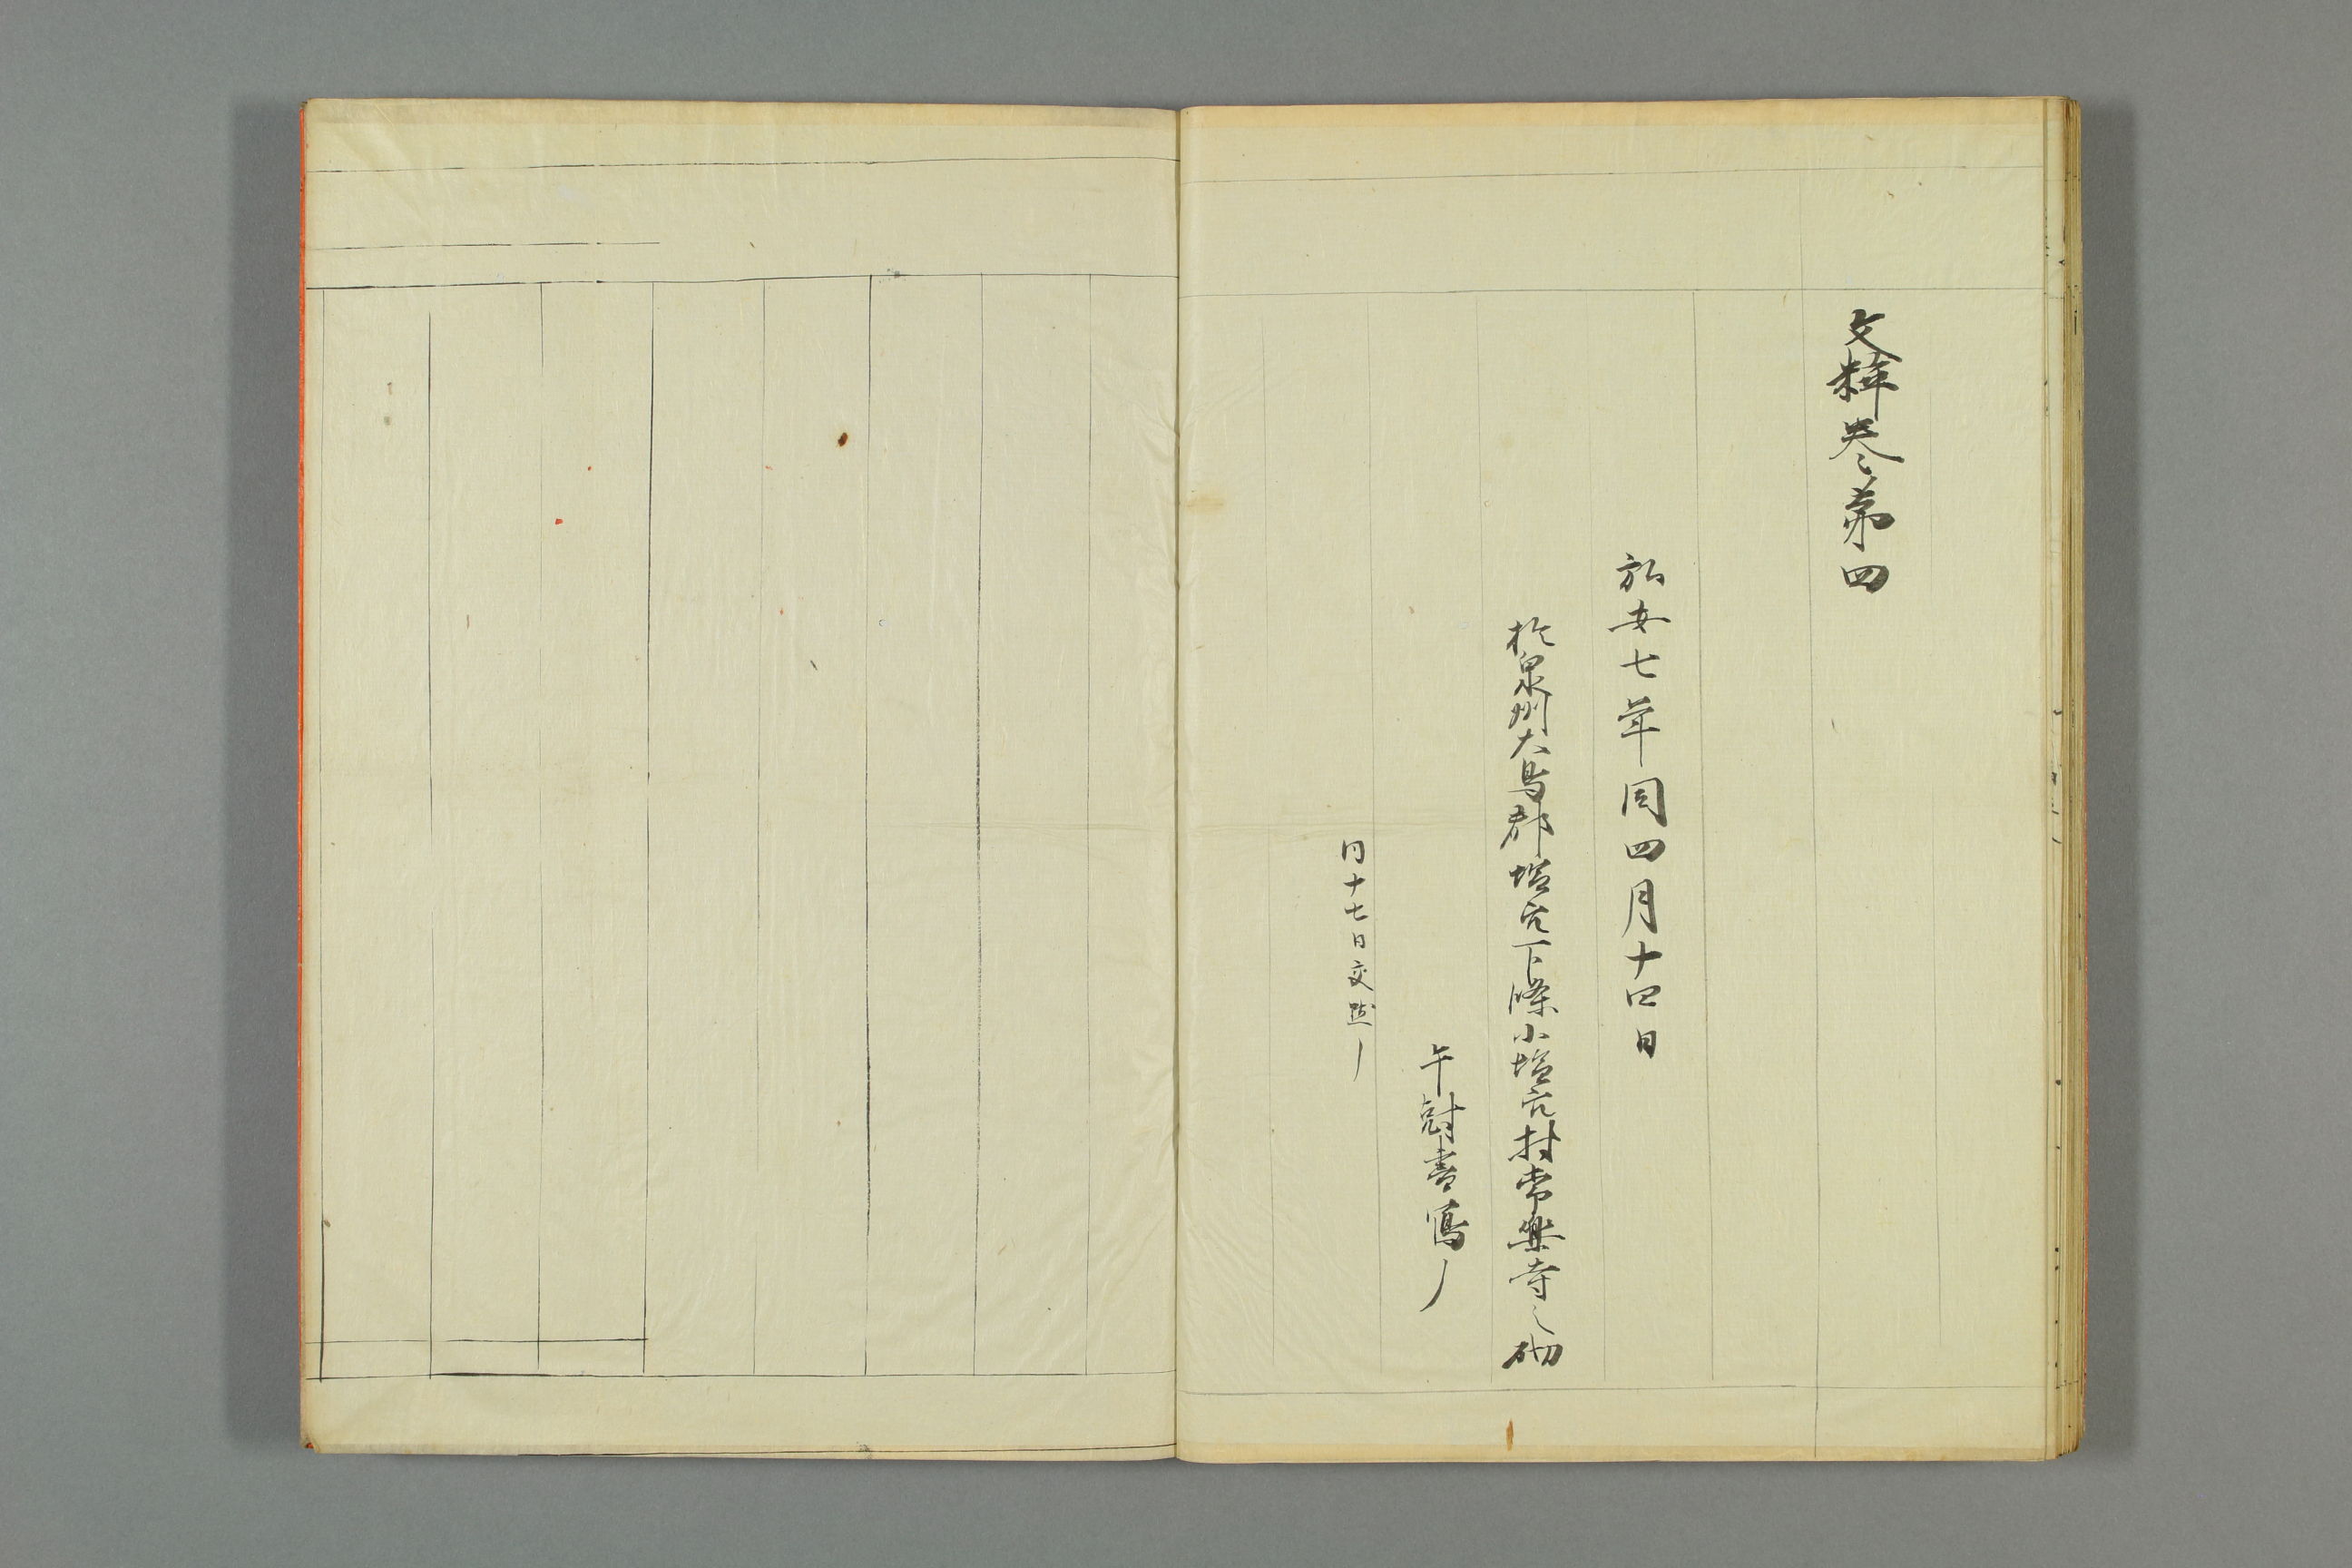 文粋卷第四
弘安七年閏四月十四日
於泉州大鳥郡塩穴下條小塩穴村常樂寺之砌
午尅書寫了
同十七日交點了